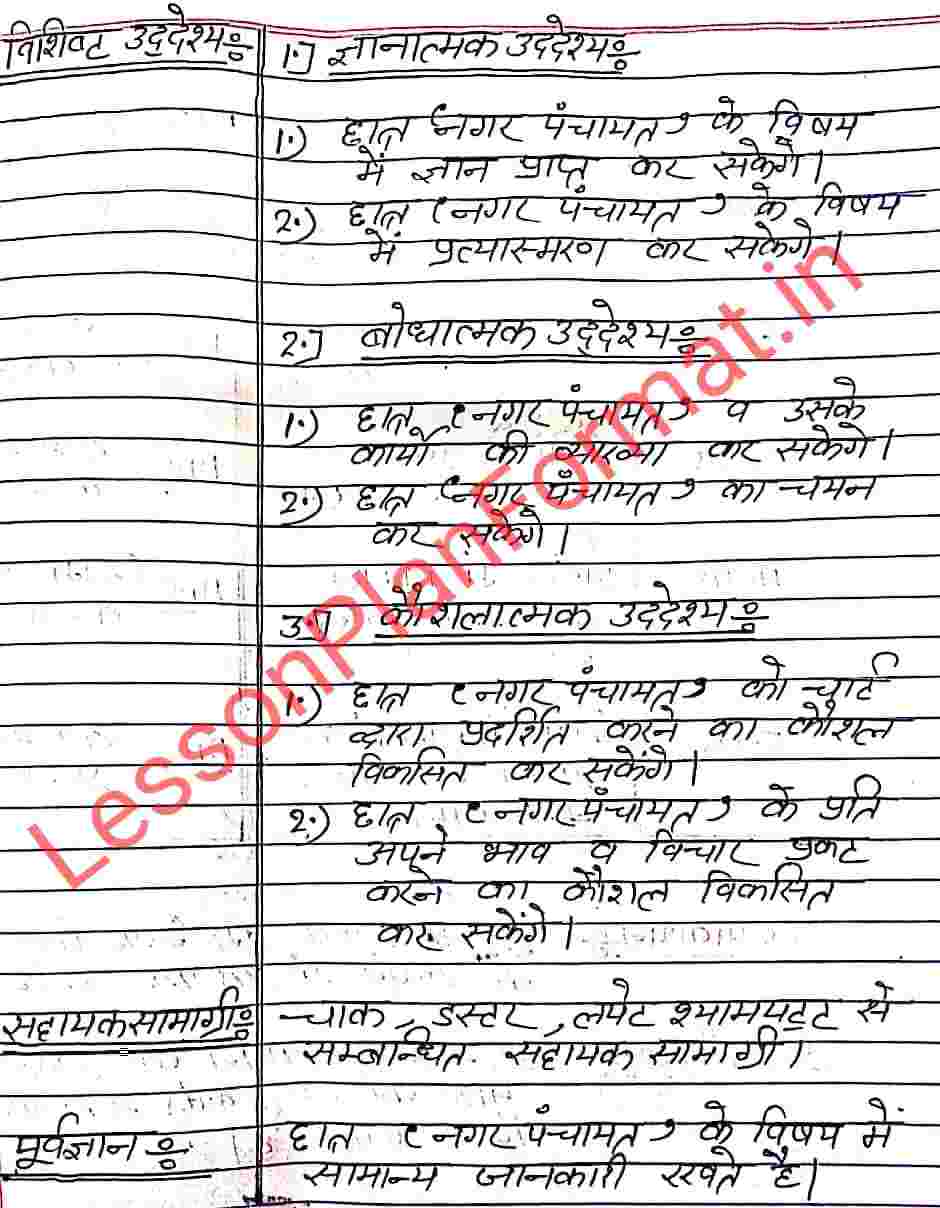 विशिष्ट उद्देश्य:
1.] ज्ञानात्मक उद्देश्य:
1.) छात्र 'नगर पंचायत' के विषय
में ज्ञान प्राप्त कर सकेगें।
2.) छात्र 'नगर पंचायत' के विषय
में प्रत्यास्मरण कर सकेगे।
2.] बोधात्मक उद्देश्य:
1.) छात्र 'नगर पंचायत' व उसके
कार्यो की व्याख्या कर सकेगे।
2.) छात्र 'नगर पंचायत' का चयन
कर सकेगे।
3.] कौशलात्मक उददेश्य:
1.) छात्र 'नगर पंचायत' को चार्ट
द्वारा प्रदर्शित करने का कौशल
विकसित कर सकेंगे।
2.) छात्र 'नगर पंचायत' के प्रति
अपने भाव व विचार प्रकट
करने का कौशल विकसित
कर सकेंगे।
सहायक सामाग्री:
चाक, डस्टर, लपेट श्यामपट्ट से
सम्बन्धित सहायक सामाग्री।
पूर्वज्ञान:
छात्र 'नगर पंचायत' के विषय में
सामान्य जानकारी रखते है।
LessonPlanFormat.in